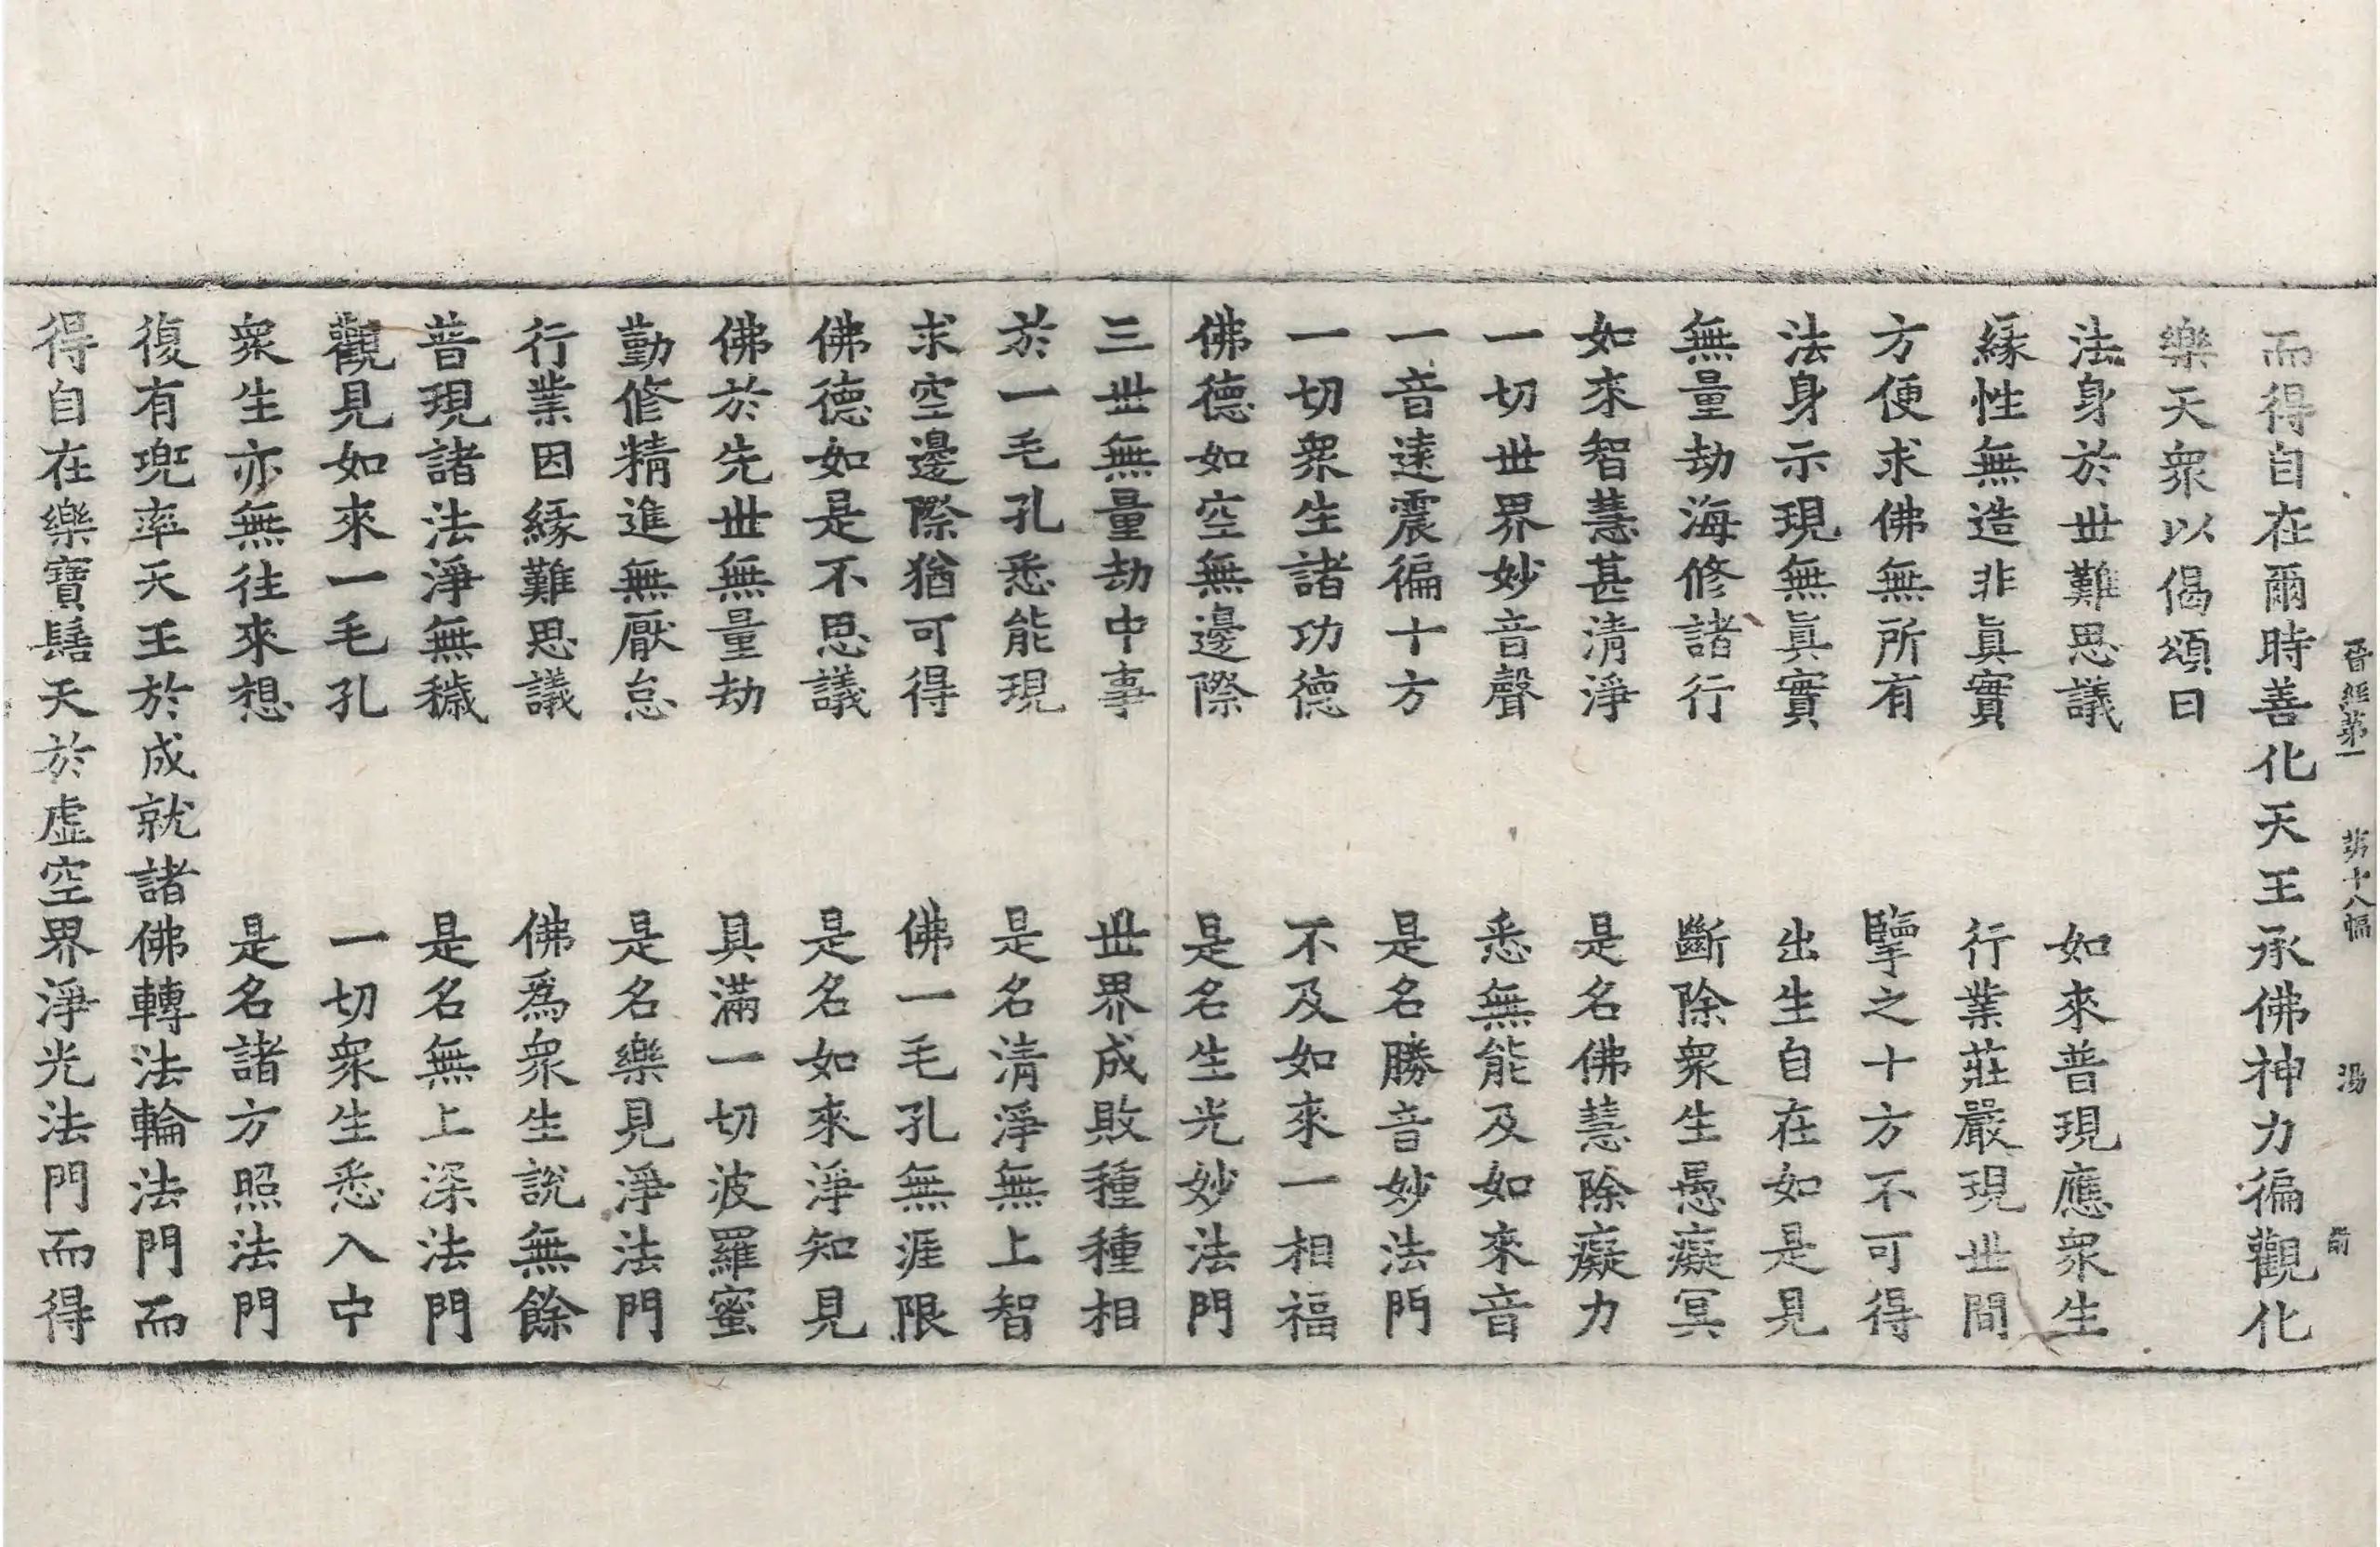 晋經第一 第十八幅 湯
而得自在爾時善化天王承佛神力徧觀化
樂天衆以偈頌曰
法身於世難思議 如來普現應衆生
緣性無造非眞實 行業莊嚴現世間
方便求佛無所有 擥之十方不可得
法身示現無眞實 出生自在如是見
無量劫海修諸行 斷除衆生愚癡冥
如來智慧甚清淨 是名佛慧除癡力
一切世界妙音聲 悉無能及如來音
一音遠震徧十方 是名勝音妙法門
一切衆生諸功德 不及如來一相福
佛德如空無邊際 是名生光妙法門
三世無量劫中事 世界成敗種種相
於一毛孔悉能現 是名清淨無上智
求空邊際猶可得 佛一毛孔無涯限
佛德如是不思議 是名如來淨知見
佛於先世無量劫 具滿一切波羅蜜
勤修精進無厭怠 是名樂見淨法門
行業因緣難思議 佛爲衆生說無餘
普現諸法淨無穢 是名無上深法門
觀見如來一毛孔 一切衆生悉入中
衆生亦無往來想 是名諸方照法門
復有兜率天王於成就諸佛轉法輪法門而
得自在樂寶髻天於虛空界淨光法門而得